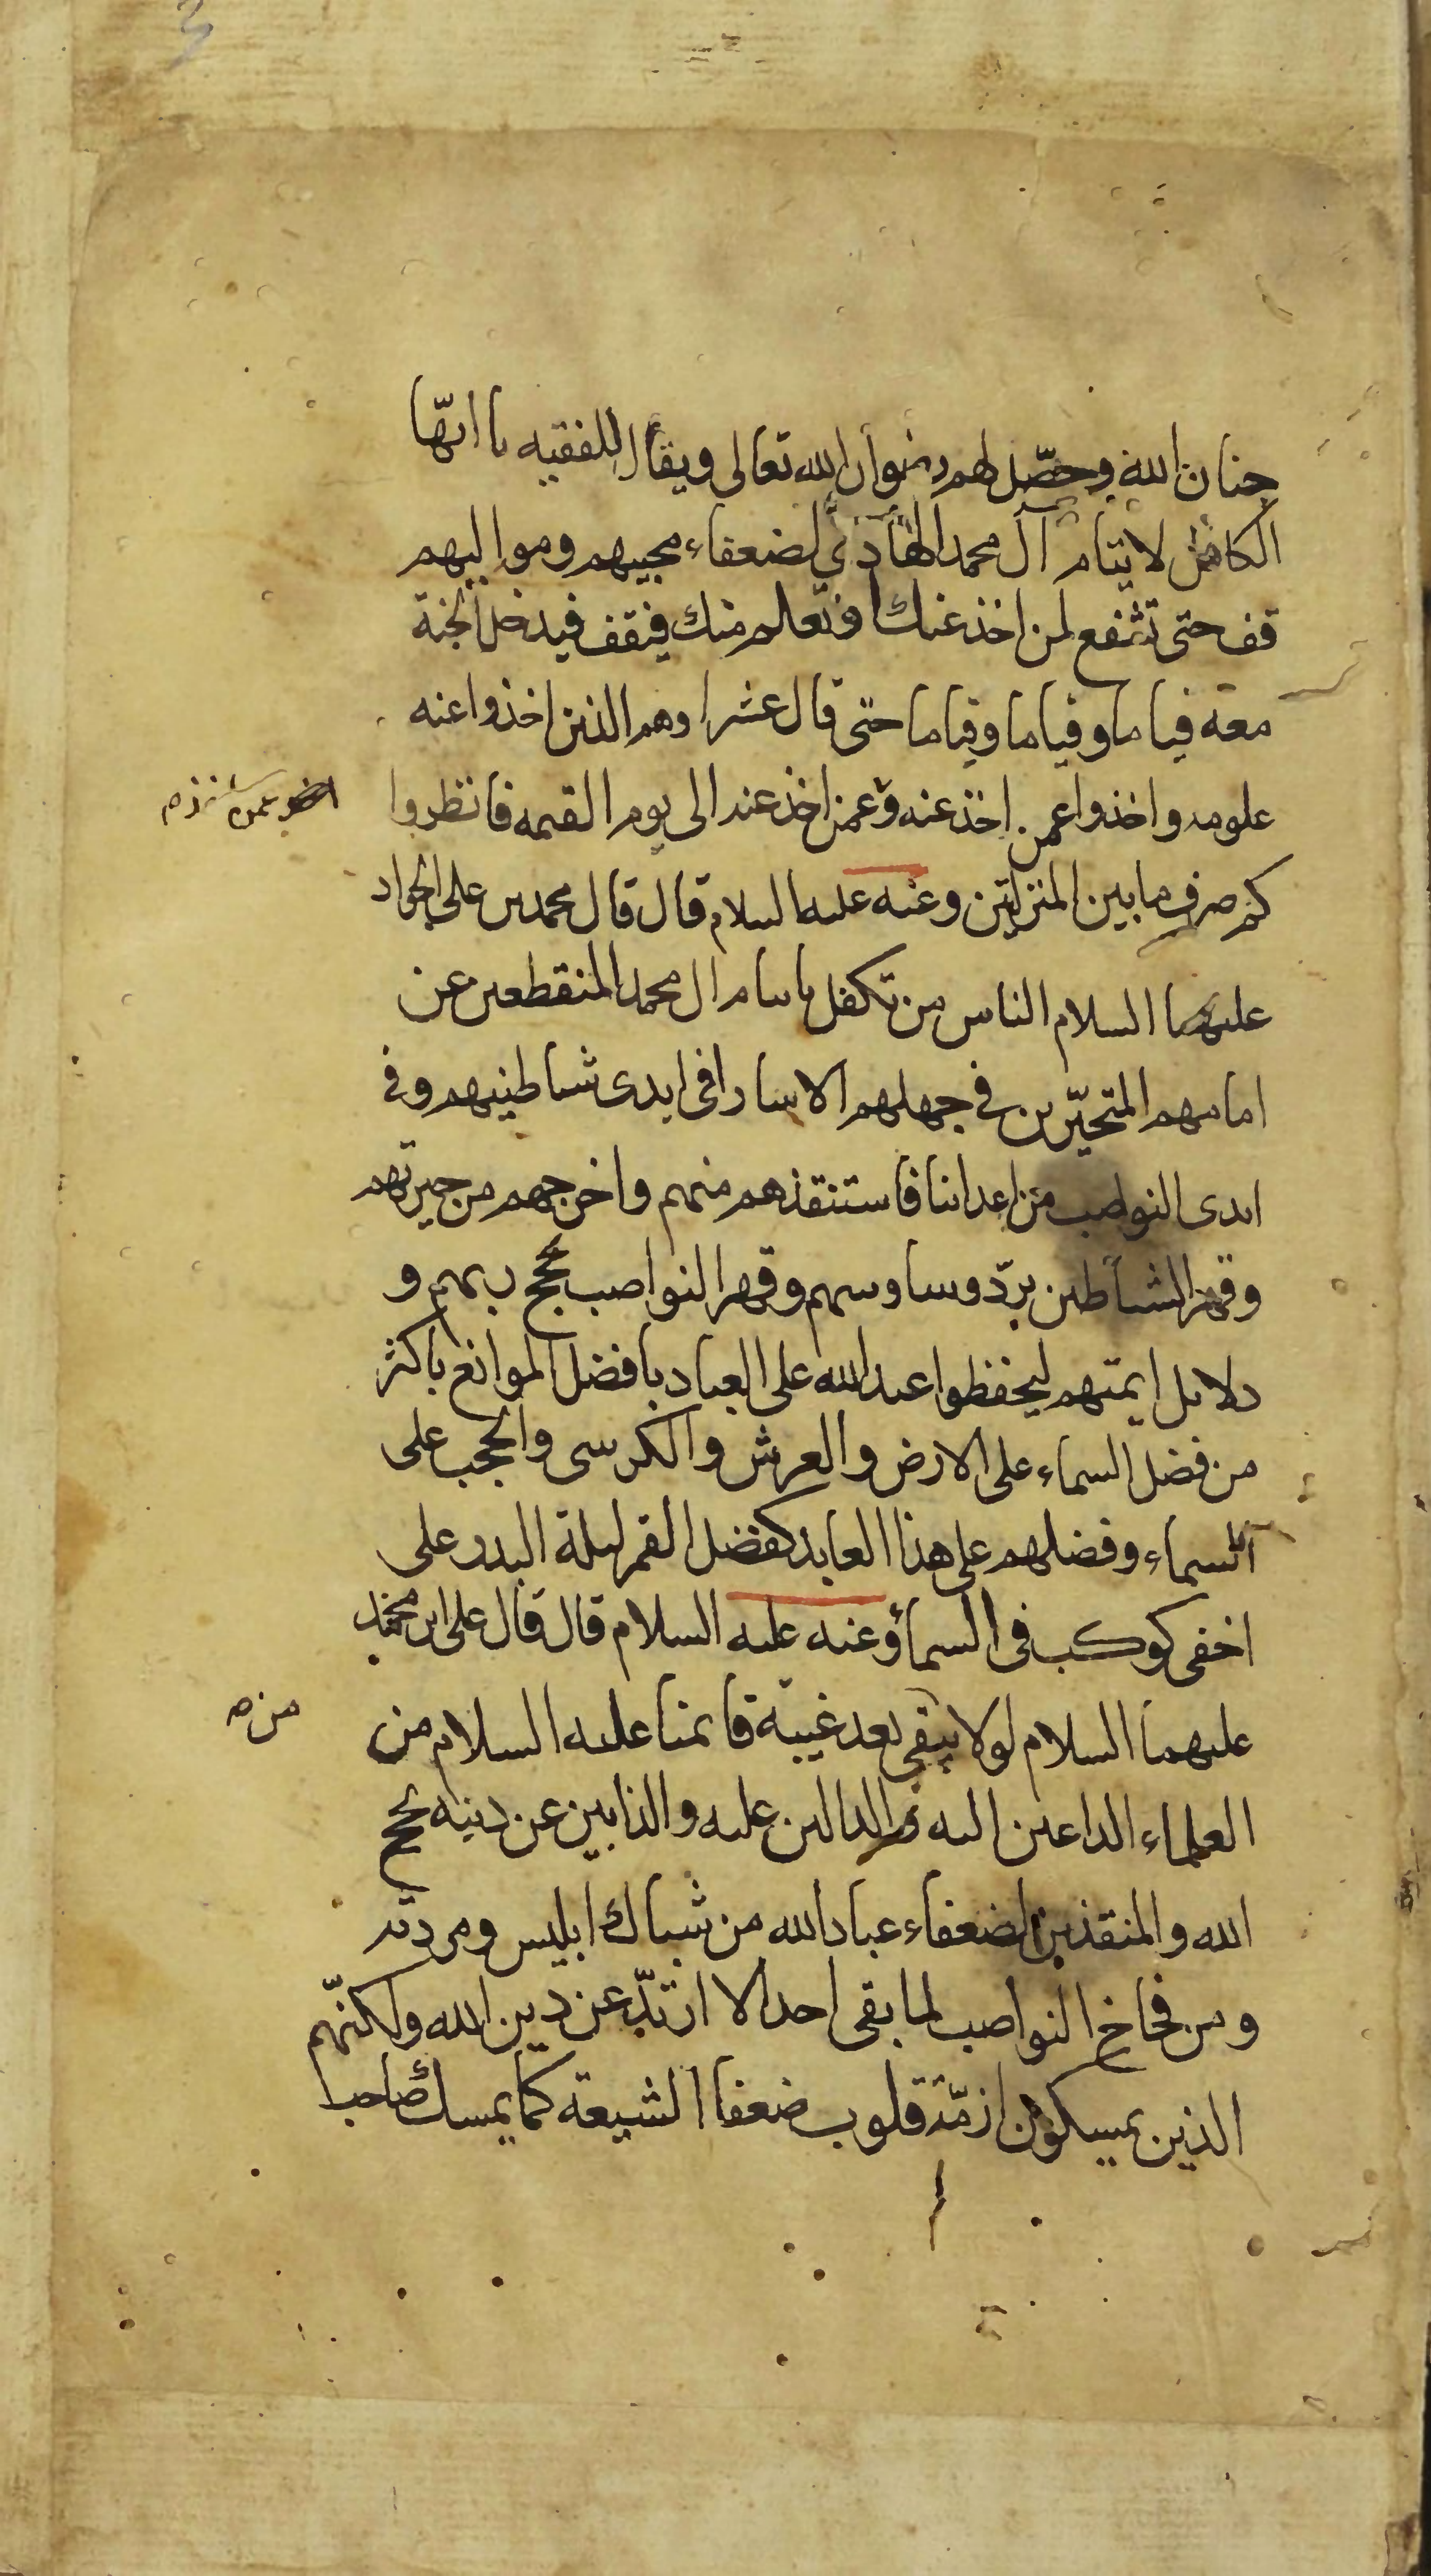 جنان الله وحصّل لهم رضوان الله تعالى ويقال للفقيه يا ايّها
الكافل لايتام آل محمد الهادي لضعفاء محبيهم ومواليهم
قف حتى تشفع لمن اخذ عنك او تعلم منك فيقف فيدخل الجنة
معه فياما وفياما وفياما حتى قال عشرا وهم الذين اخذوا عنه
علومه واخذوا عمن اخذ عنه وعمن اخذ عنه الى يوم القيمه فانظروا
كم صرف ما بين المنزلتين وعنه عليه السلام قال قال محمد بن على الجواد
عليهما السلام الناس من تكفل بايتام ال محمد المنقطعين عن
امامهم المتحيّرين في جهلهم الاسارا في ايدى شياطينهم وفى
ايدى النواصب من اعدائنا فاستنقذهم منهم واخرجهم من حيرتهم
وقهر الشياطين بردّ وساوسهم وقهر النواصب بحجج ربهم و
دلايل ايمتهم ليحفظوا عهد الله على العباد بافضل الموانع باكثر
من فضل السماء على الارض والعرش والكرسى والحجب على
السماء وفضلهم على هذا العابد كفضل القمر ليلة البدر على
اخفى كوكب فى السماء وعنه عليه السلام قال قال على ابن محمد
عليهما السلام لولا يبقى بعد غيبة قايمنا عليه السلام من
من
العلماء الداعين اليه والدالين عليه والذابين عن دينه بحجج
الله والمنقذين لضعفاء عباد الله من شباك ابليس ومردته
ومن فخاخ النواصب لما بقى احد الا ارتدّ عن دين الله ولكنّهم
الذين يمسكون ازمّة قلوب ضعفا الشيعة كما يمسك صاحب